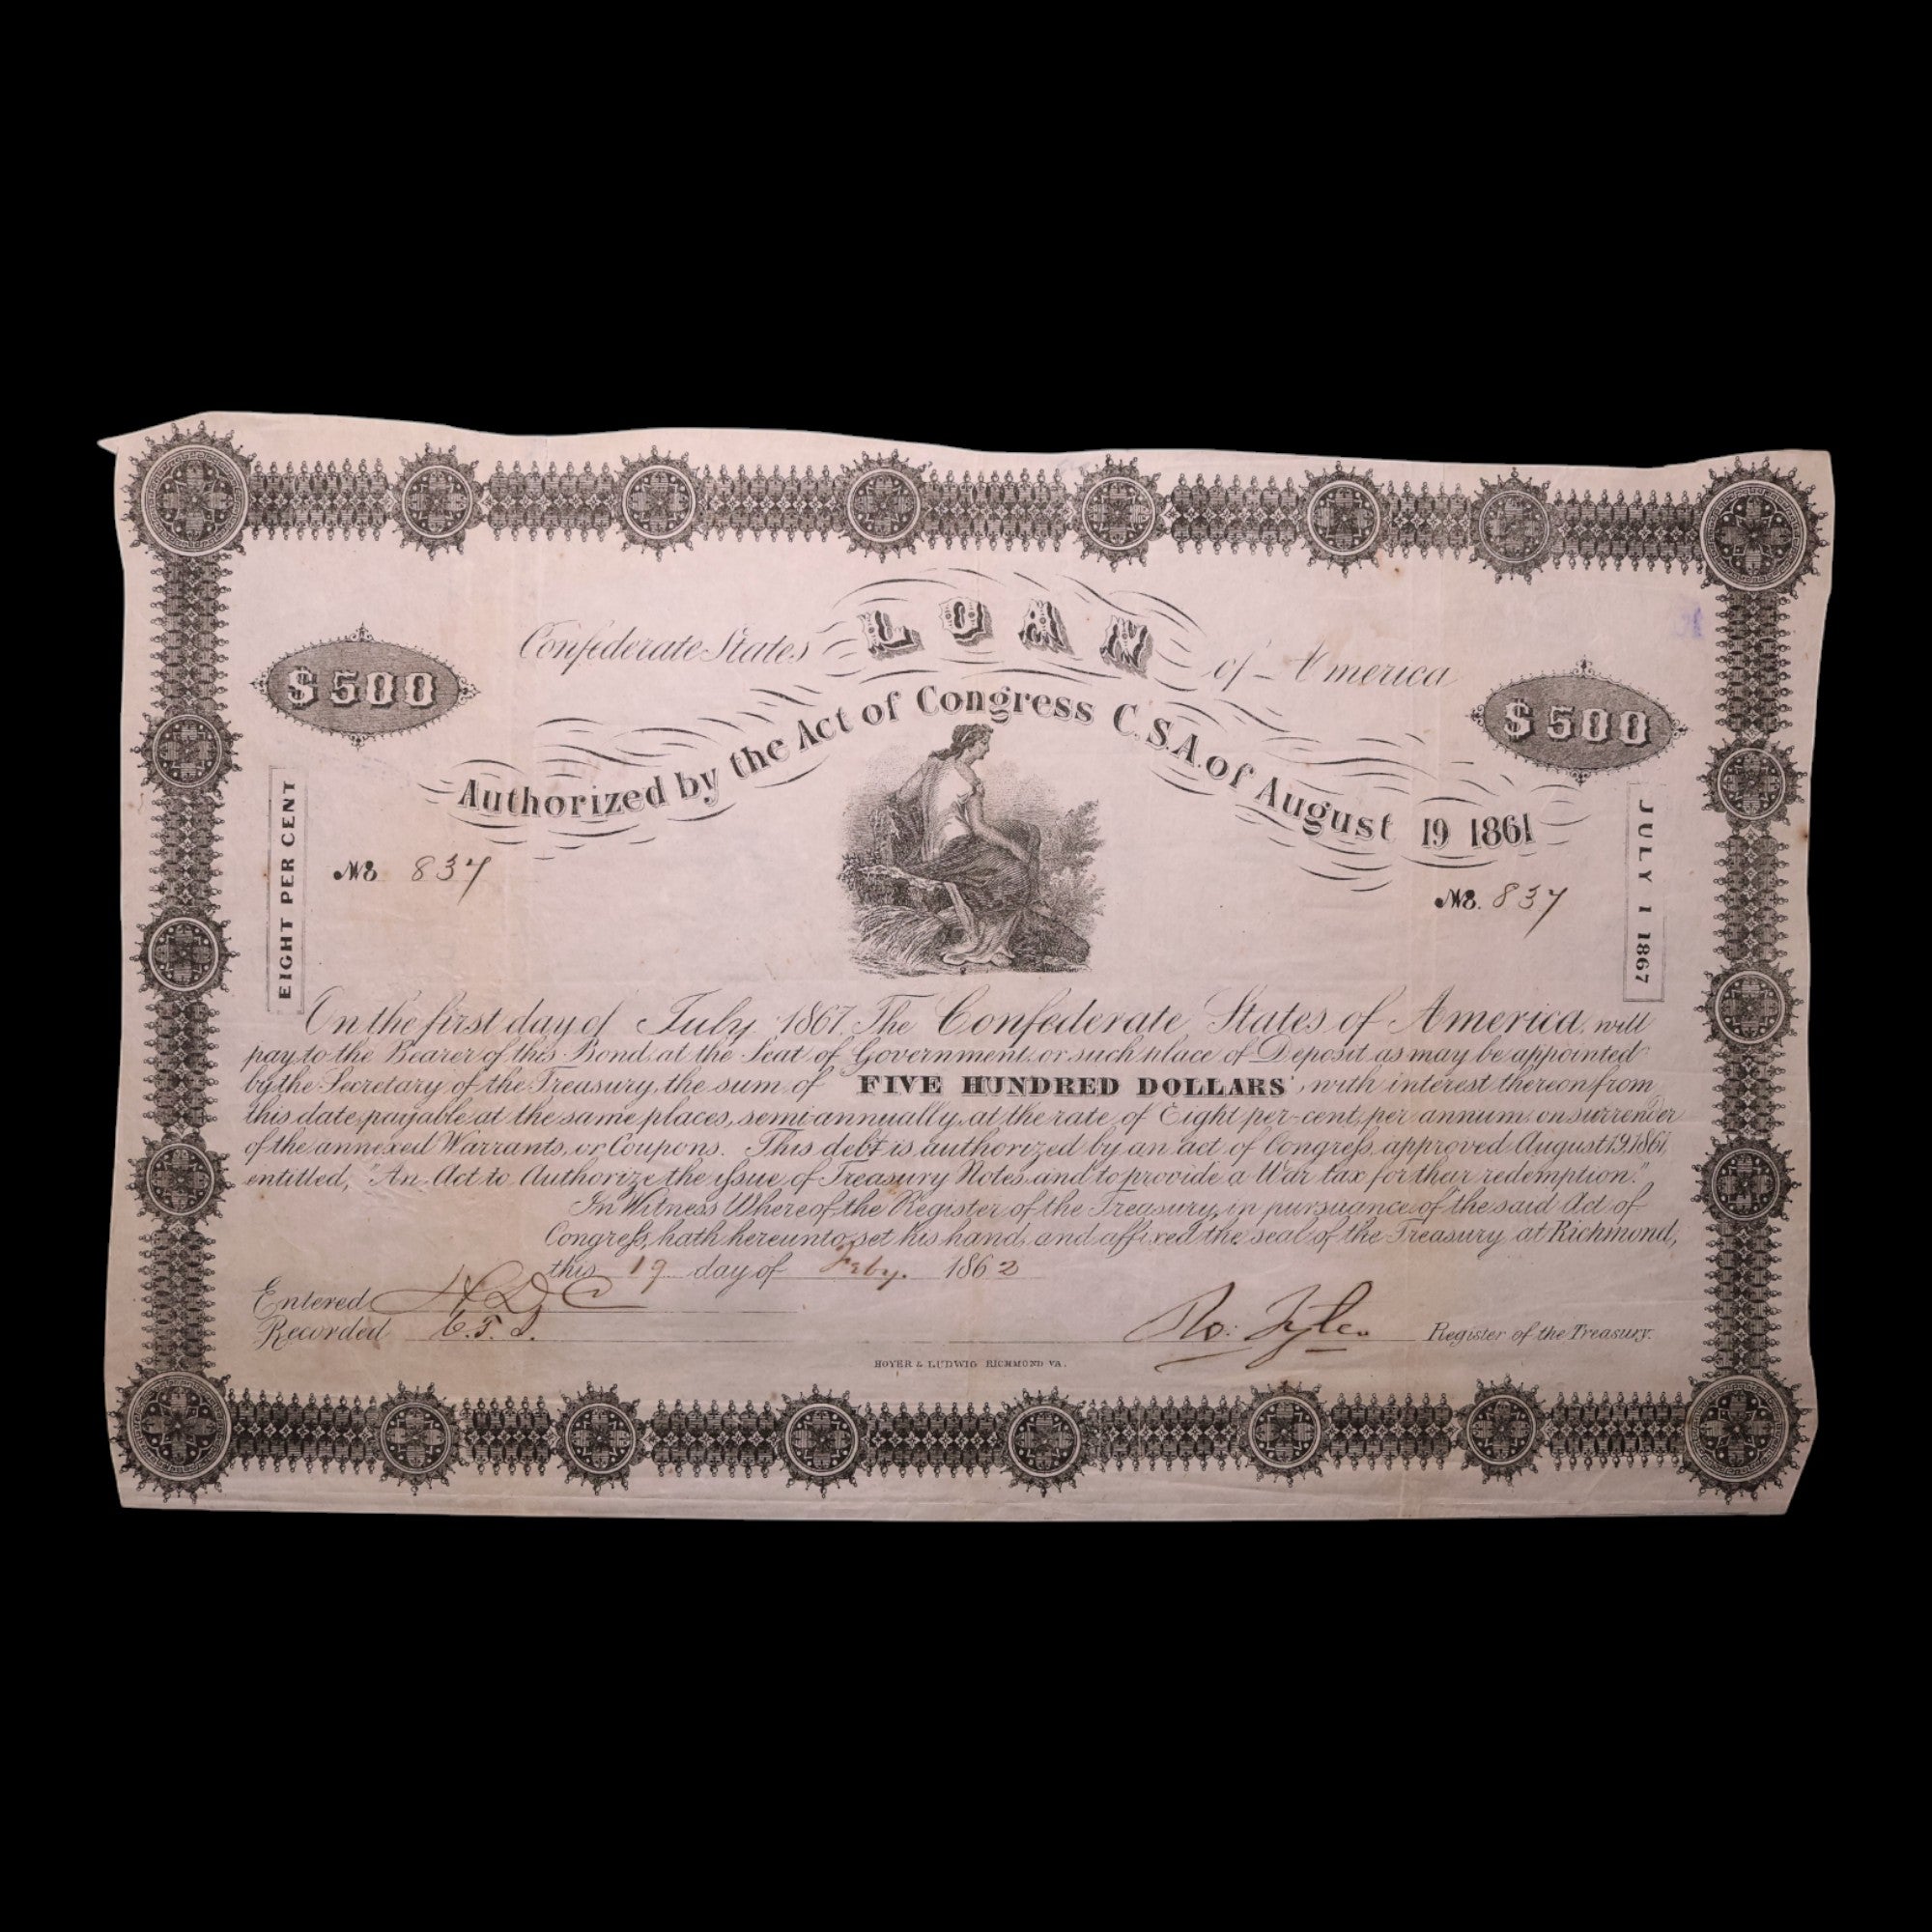 Confederate States LOAN of America
$500
$500
Authorized by the Act of Congress C.S.A. of August 19 1861
EIGHT PER CENT
JULY 1 1867
No 837
No. 837
On the first day of July 1867, The Confederate States of America, will
pay to the Bearer of this Bond, at the Seat of Government, or such place of Deposit as may be appointed
by the Secretary of the Treasury, the sum of FIVE HUNDRED DOLLARS, with interest thereon from
this date, payable at the same places, semi-annually, at the rate of Eight per-cent, per annum, on surrender
of the annexed Warrants, or Coupons. This debt is authorized by an act of Congress, approved August 19, 1861,
entitled, "An Act to Authorize the issue of Treasury Notes, and to provide a War tax for their redemption."
In Witness Whereof the Register of the Treasury, in pursuance of the said Act of
Congress, hath hereunto set his hand, and affixed the seal of the Treasury at Richmond,
this 19 day of Feby. 1862
Entered
Recorded C.T.
Ro: Tyler Register of the Treasury.
HOYER & LUDWIG RICHMOND VA.